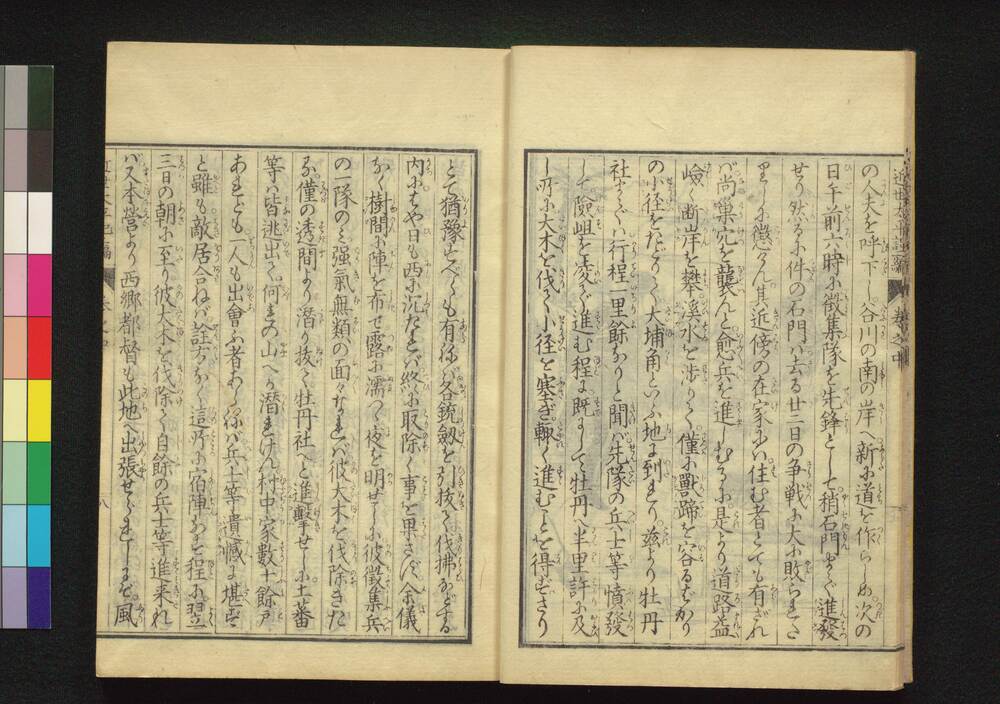 の人夫を呼下し谷川の南の岸へ新に道を作らしめ次の
日午前六時に徴集隊を先鋒として稍石門まで進發
せり然るに件の石門ハ去る廿二日の争戦に大に敗られた
りしに懲けん其近傍の在家にハ住む者とても有ざれ
バ尚巣穴を襲んと愈兵を進しむるに是より道路益
嶮く断岸を攀溪水を渉りて僅に獣蹄を容るばかり
の小径をたどりて大埔角といふ地に到れり茲より牡丹
社までハ行程一里餘なりと聞バ先隊の兵士等憤發
して險岨を凌ぎ進む程に既にして牡丹へ半里許に及
し所に大木を伐て小径を塞ぎ輙く進むことを得ざりし
とて猶豫すべうも有ねバ各銃劔を引抜て伐拂などする
内にはや日も西に沉たれバ終に取除く事を果さず余儀
なく樹間に陣を布せ露に濡て夜を明せしに彼徴集兵
の一隊のミ強氣無類の面々なれバ彼大木を伐除きた
る僅の透間より潜り抜て牡丹社へと進撃せしに土蕃
等ハ皆逃出て何れの山へか潜れけん村中家數十餘戸
あれども一人も出會ふ者あらねバ兵士等遺憾に堪ず
と雖も敵居合ねバ詮方なく這所に宿陣なす程に翌
三日の朝に至り彼大木を伐除て自餘の兵士等進来れ
バ又本營より西郷都督も此地へ出張せられしかど風